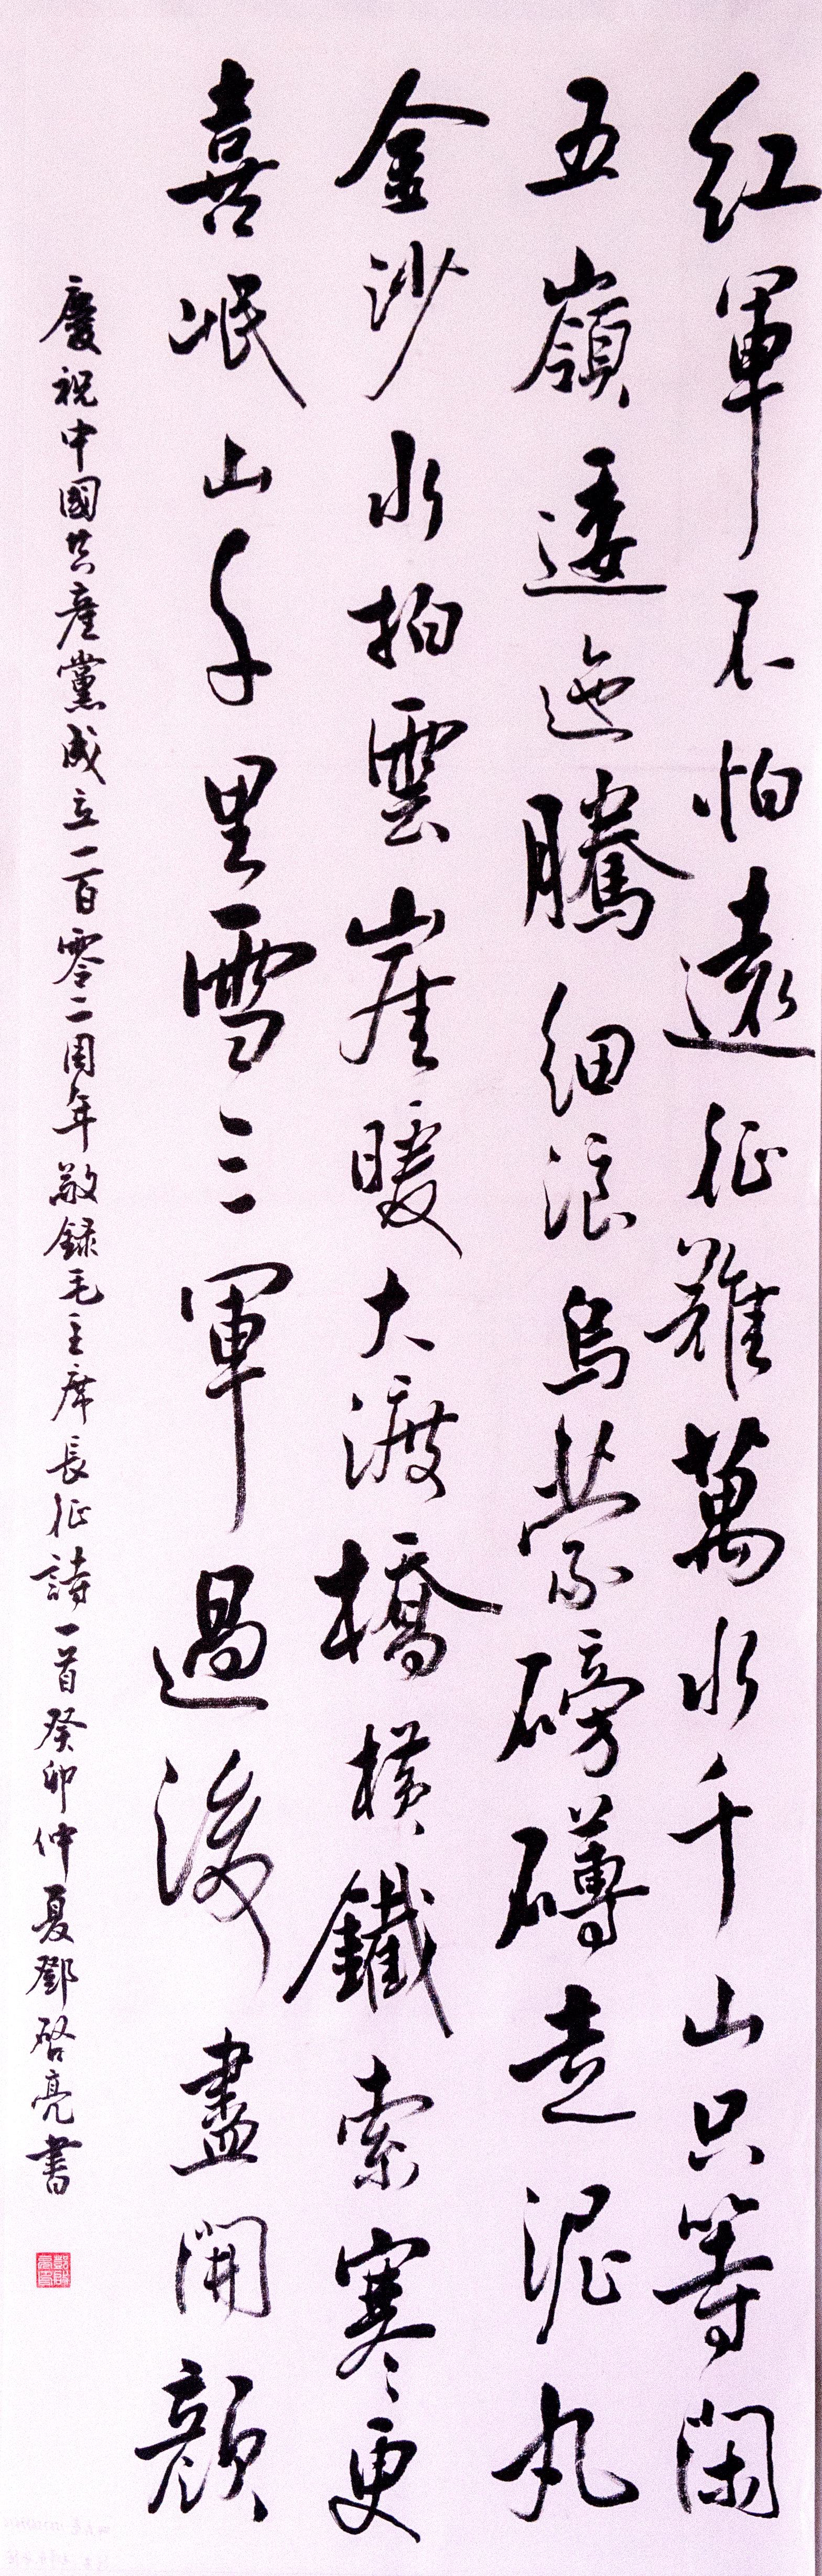 紅軍不怕遠征難萬水千山只等閑
五嶺逶迤騰細浪烏蒙磅礴走泥丸
金沙水拍雲崖暖大渡橋橫鐵索寒更
喜岷山千里雪三軍過後盡開顔
慶祝中國共產黨成立一百零二周年敬録毛主席長征詩一首癸卯仲夏鄧啓亮書